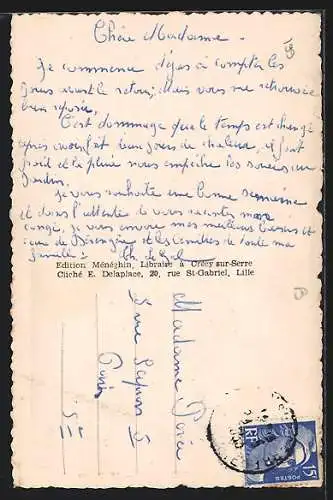 Chère Madame -
Je commence déjas à compter les
jours avant le retour; Mais vous me retrouverez
bien reposée.
C'est dommage que le temps est changé
après avoir fait beau jours de chaleur, il fait
froid et la pluie nous empêche les soucis au
jardin.
Je vous souhaite une bonne semaine
et dans l'attente de vous raconter mon
congé, je vous envoie mes meilleurs baisers et
ceux de Bérangère et les amitiés de toute ma
famille
Edition Ménéghin, Libraire à Crécy-sur-Serre
Cliché E. Delaplace, 20, rue St-Gabriel, Lille
Madame
5 rue
Paris
5e
15F
RF
POSTES